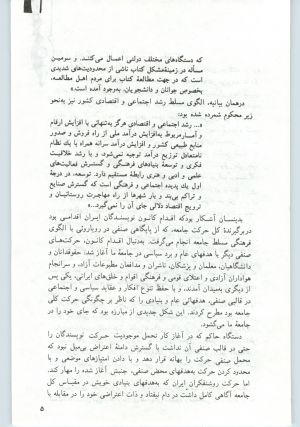 که دستگاه‌های مختلف دولتی اعمال می‌کنند. و سومین
مسأله در زمینهٔ مشکل کتاب ناشی از محدودیت‌های شدیدی
است که در جهت مطالعهٔ کتاب برای مردم اهل مطالعه،
بخصوص جوانان و دانشجویان، بوجود آمده است.»
در همان بیانیه، الگوی مسلط رشد اجتماعی و اقتصادی کشور نیز به‌نحو
زیر محکوم شمرده شده بود:
«... رشد اجتماعی و اقتصادی هرگز به‌تنهائی با افزایش ارقام
و آمار مربوط به‌افزایش درآمد ملی از راه فروش و صدور
منابع طبیعی کشور و افزایش درآمد سرانه همراه با یك نظام
نامتعادل توزیع درآمد توجیه نمی‌شود، و با رشد خلاقیت
فکری و توسعهٔ بنیادهای فرهنگی و گسترش فعالیت‌های
علمی و ادبی و هنری رابطهٔ مستقیم دارد. توسعه، در درجهٔ
اول یك پدیده اجتماعی و فرهنگی است که گسترش صنایع
و تراکم بی‌بند و بار شهرها از راه مهاجرت روستائیان و
ترویج اقتصاد دلالی جای آن را نمی‌گیرد...»
بدینسان آشکار بود که اقدام کانون نویسندگان ایران اقدامی بود
دربرگیرندهٔ کل حرکت جامعه، که از پایگاهی صنفی در رویاروئی با الگوی
فرهنگی مسلط جامعه انجام می‌گرفت. به‌دنبال اقدام کانون، حرکت‌های
دیگری با هدفهای عام و بررسی در جامعهٔ ما آغاز شد: حقوقدانان و
دانشگاهیان، معلمان و پزشکان، ناشران و مدافعان مطبوعات آزاد، و سرانجام
هواداران آزادی و اعتلای قومی و فرهنگی اقوام و خلق‌های ایرانی، یکی پس
از دیگری به‌میدان آمدند، و با حفظ تنوع افکار و عقاید سیاسی و اجتماعی
در قالبی صنفی، هدفهای عام و بنیادی را که ناظر بر چگونگی حرکت کلی
جامعه بود مطرح کردند. این شکل جدیدی از مبارزه بود که جای خود را در
جامعهٔ ما می‌گشود.
دستگاه حاکم که در آغاز کار تحمل موجودیت حرکت نویسندگان را
حتی در قالب صنفی آن نداشت با گسترش دامنهٔ اعتراض بی‌میل نبود که
محمل صنفی حرکت را بهانه قرار دهد و با دادن امتیازهای موضعی و با
محدود کردن حرکت به‌هدفهای صنفی، جنبش آغاز شده را مهار کند.
اما حرکت روشنفکران ایران که به‌هدفهای بنیادی خویش در مقیاس کل
جامعه آگاهی کامل داشت در دام نیفتاد و ذات اعتراضی خود را در مقابله با
۵